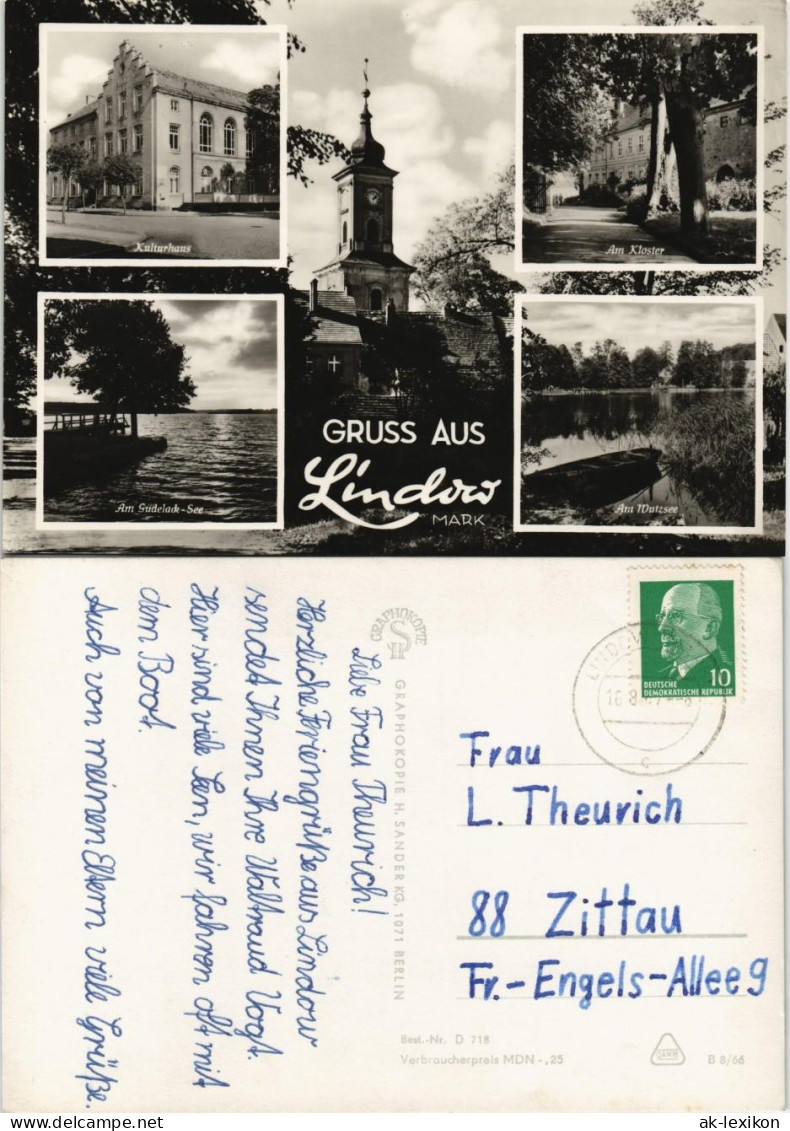 Kulturhaus
Am Kloster
Am Gudelack-See
GRUSS AUS
Lindow
MARK
Am Wutzsee
Liebe Frau Theurich!
Herzliche Feriengrüße aus Lindow
sendet Ihnen Ihre Waltraud Vogt.
Hier sind viele Seen, wir fahren oft mit
dem Boot.
Auch von meinen Eltern viele Grüße.
GRAPHOKOPIE
GRAPHOKOPIE H. SANDER KG, 1071 BERLIN
10
DEUTSCHE
DEMOKRATISCHE REPUBLIK
Frau
L. Theurich
88 Zittau
Fr.-Engels-Allee 9
Best.-Nr. D 718
Verbraucherpreis MDN -,25
B 8/66
www.ak-ansichtskarten.de
ak-lexikon